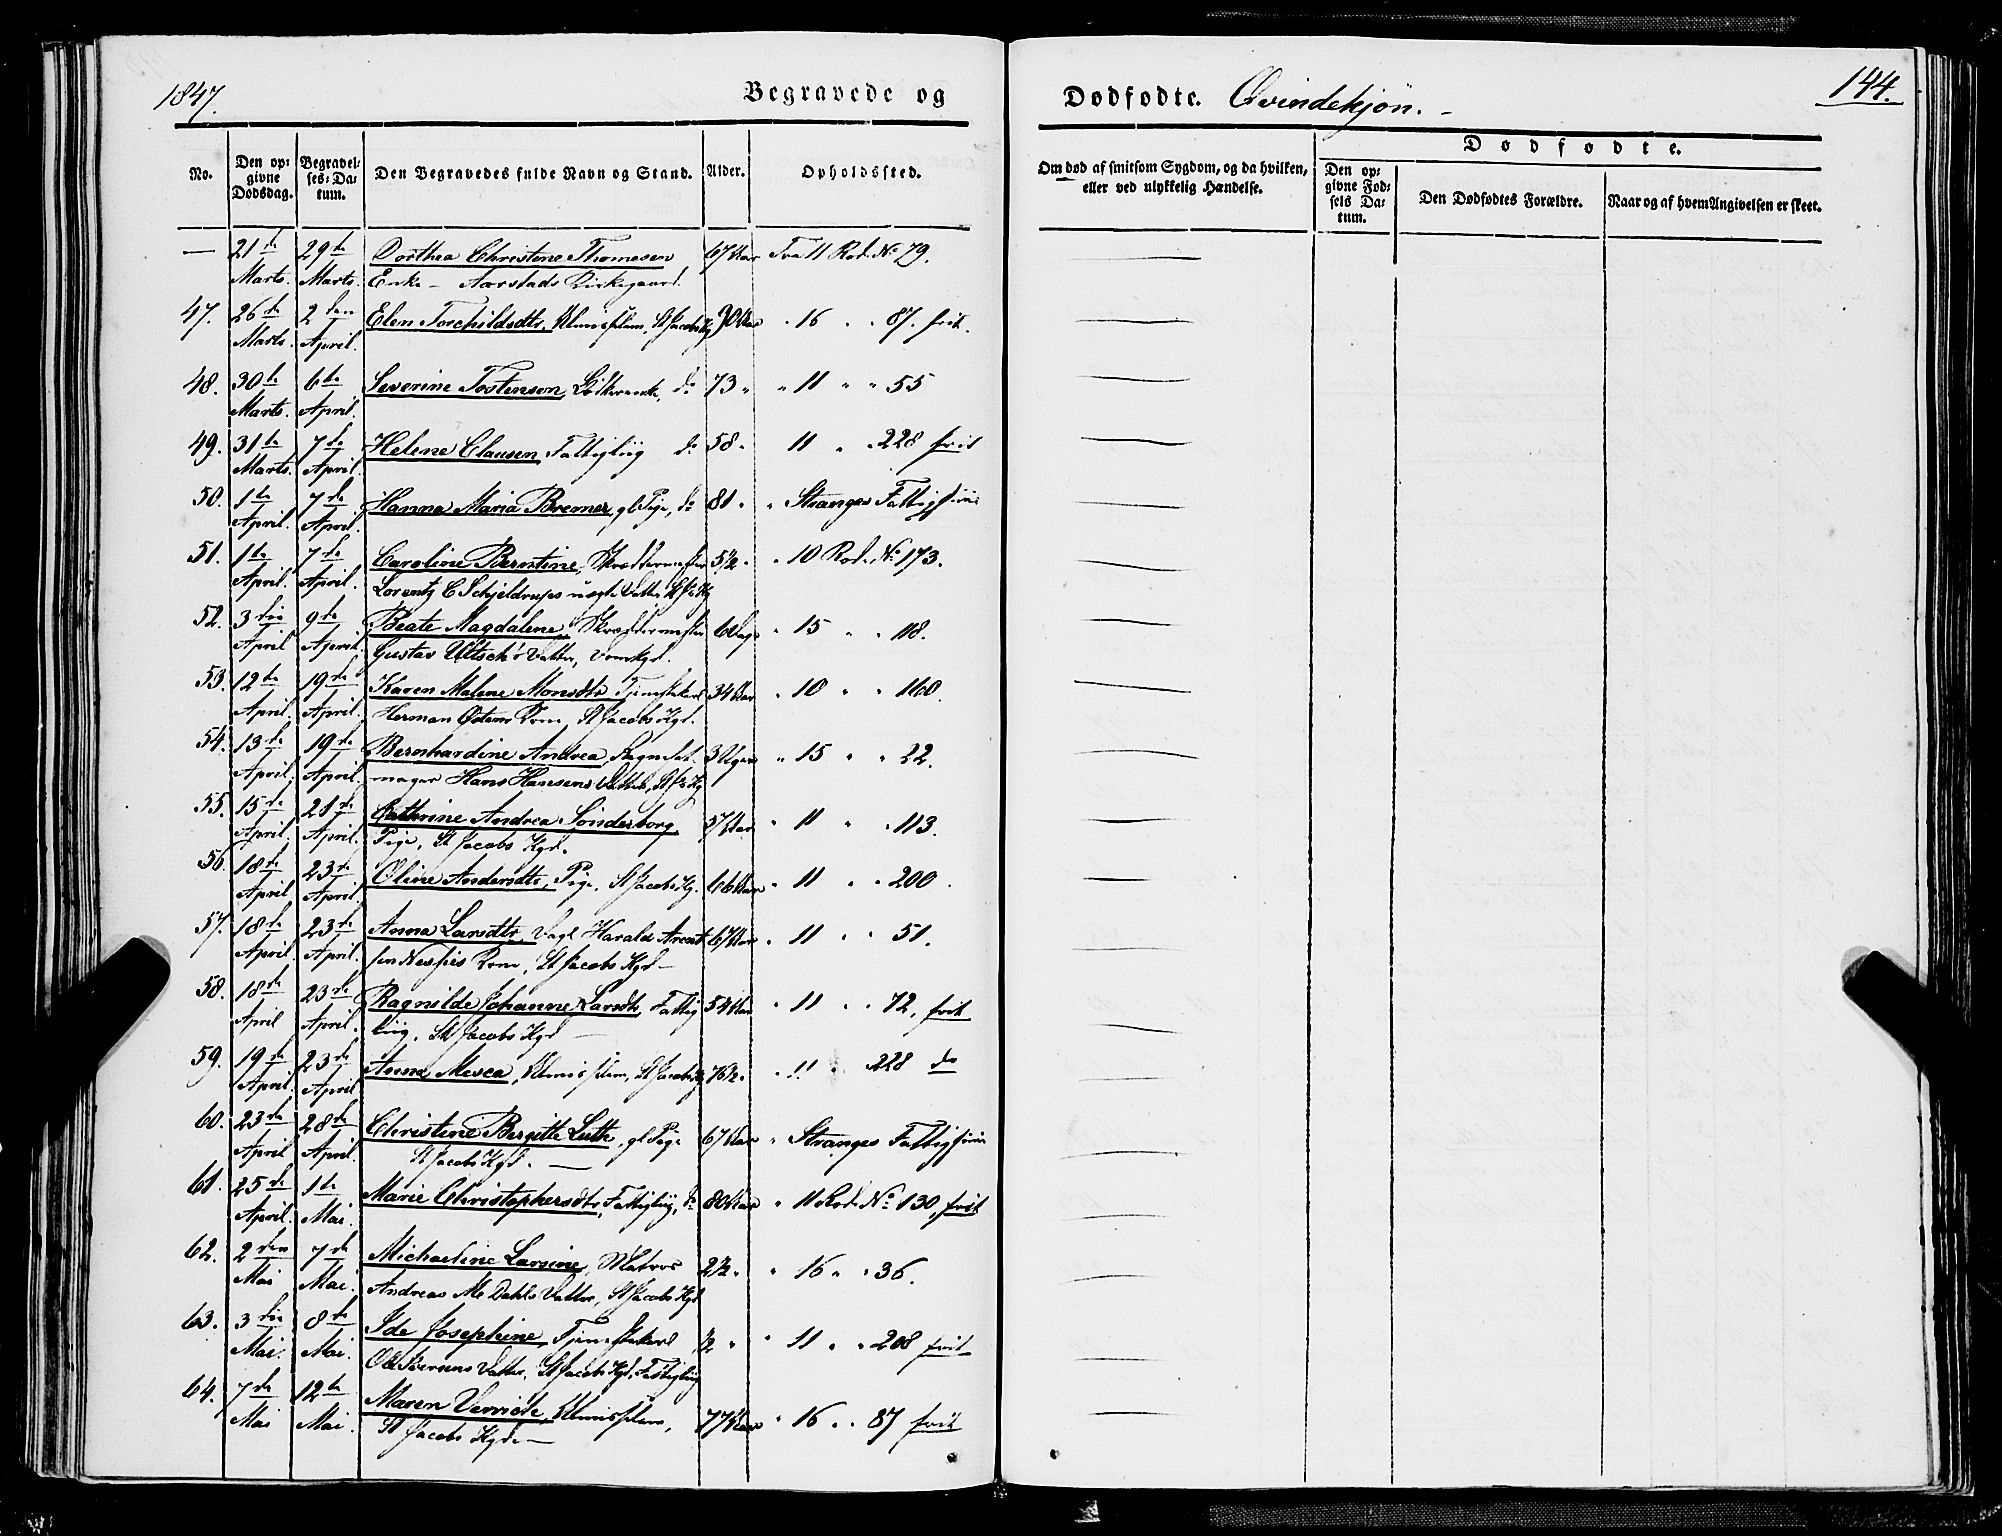 1847.
Begravede og
Dødfødte. Qvindekjøn.
144.
No.
Den opgivne Dødsdag.
Begravelses-Datum.
Den Begravedes fulde Navn og Stand.
Alder.
Opholdssted.
Om død af smitsom Sygdom, og da hvilken, eller ved ulykkelig Hændelse.
Dødfødte.
Den opgivne Fødsels Datum.
Den Dødfødtes Forældre.
Naar og af hvem Angivelsen er skeet.
— 21de 29de Dorthea Christine Thomesen 67 Aar Fra 11 Rode No 79.
Marts. Marts. Enke – Aarstads Kirkegaard.
47. 26de 2den Elen Torchildsdtr, Almisselem, St Jacobs Kg 90 Aar " 16 " " 87. frit.
Marts. April.
48. 30te 6te Severine Tostenson, do 73 " " 11 " " 55
Marts. April.
49. 31te 7de Helene Clausen, Fattiglig do 58 " 11 " " 228 frit
Marts. April.
50. 1te 7de Hanna Maria Bremer, gl Pige, do 81 " " Stranges Fattighuus
April. April.
51. 1te 7de Caroline Berntine, Skræddermester 5½ " " 10 Rode No 173.
April. April. Lorentz C Schjeldrups uægte Datter St Js Kg
52. 3die 9de Beate Magdalene, Skræddermester 6 Dage " 15 " " 118.
April April. Gustav Ultsch's Datter, Domkgd.
53. 12te 19de Karen Malene Monsdtr, Tjenestekarl 34 Aar " 10 " " 160.
April. April. Herman Ostens Kone, St Jacobs Kgd.
54. 13de 19de Bernhardine Andrea, 3 Uger " 15 " " 22.
April. April. mager Hans Hansens Datter, St Js Kg
55. 15de 21de Cathrine Andrea Sønderborg, 57 Aar " 11 " " 113.
April. April. Pige, St Jacobs Kgd.
56. 18de 23de Oline Andersdtr, Pige, St Jacobs Kg. 66 Aar " 11 " " 200.
April April.
57. 18de 23de Anna Larsdtr, Dagl Harald Arent- 67 Aar " 11 " " 51.
April. April. sen Nesses Kone, St Jacobs Kgd –
58. 18de 23de Ragnilde Johanne Larsdtr, Fattig 54 Aar " 11 " " 72, frit
April April. lig, St Jacobs Kgd —
59. 19de 23de Anna Mesca, Almisselem, St Jacobs Kg 76½ " " 11 " 228 do
April. April
60. 23de 28de Christine Bergitte Luth, gl Pige 67 Aar " Stranges Fattighuus
April April. St Jacobs Kgd. —
61. 25de 1te Marie Christophersdtr, Fattiglig, do 80 Aar " 11 Rode No 130, frit
April. Mai.
62. 2den 7de Michaeline Larsine, Matros 2½ " " 16 " " 36.
Mai Mai. Andreas M Dahls Datter, St Jacobs Kgd
63. 3die 8de Ide Josephine, Tjenestekarl ½ " " 11 " " 208 frit
Mai. Mai. Ole Iversens Datter, St Jacobs Kgd, Fattiglig
64. 7de 12te Maren Vernich, Almisselem, 77 Aar " 16 " " 87 frit
Mai Mai. St Jacobs Kgd —